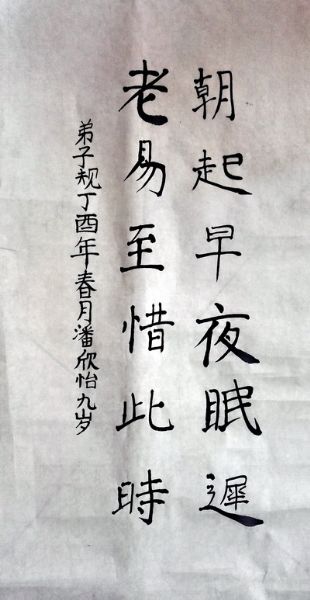 朝起早夜眠遲
老易至惜此時
弟子规丁酉年春月潘欣怡九岁